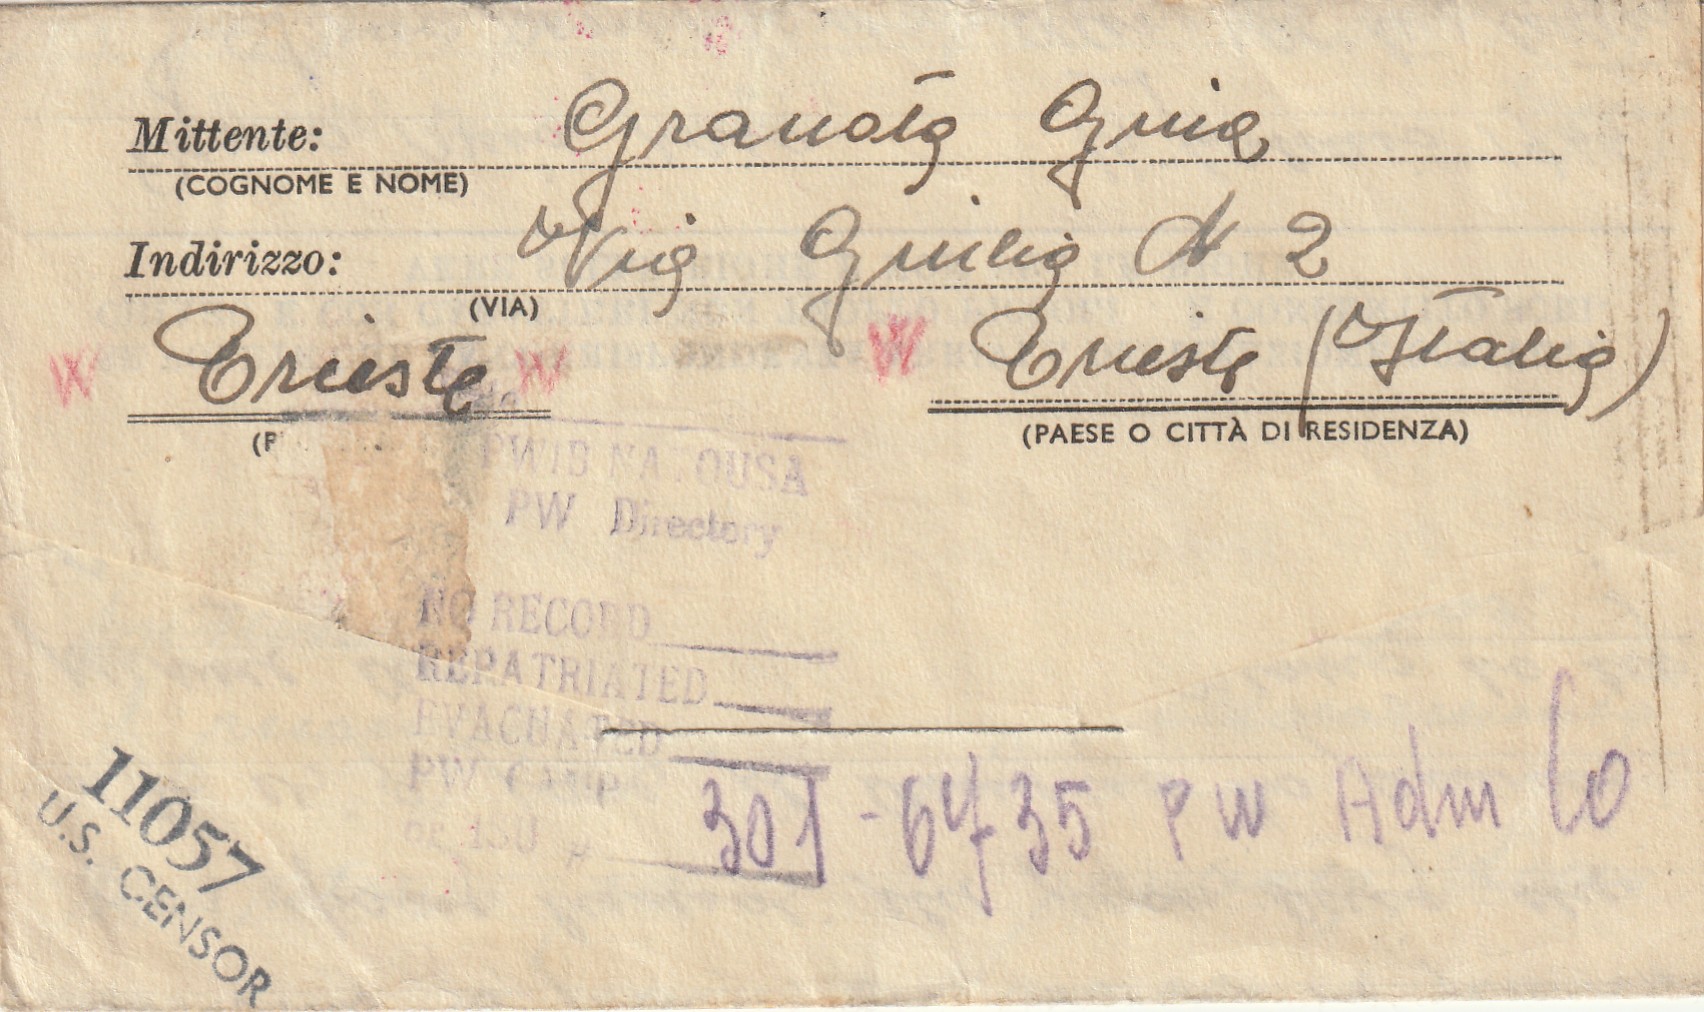 Mittente: Granata Guia
(COGNOME E NOME)
Indirizzo: Via Giulia N 2
(VIA)
W Trieste W W Trieste (Italia)
(P (PAESE O CITTÀ DI RESIDENZA)
PWIB NATOUSA
PW Directory
NO RECORD
REPATRIATED
EVACUATED
PW Camp
301 - 6435 PW Adm Co
11057
U.S. CENSOR